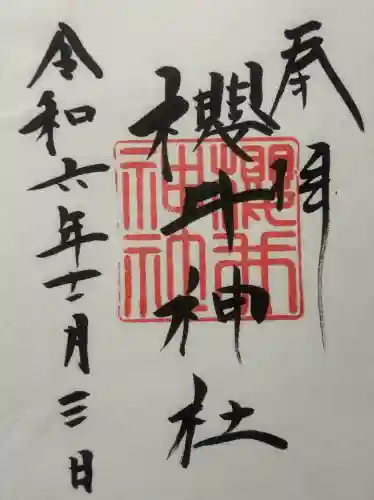 奉拝
櫻井神社
櫻井神社
令和六年十二月三日